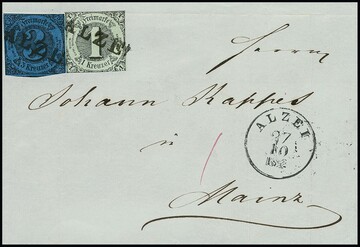 Freimarke
3
Kreuzer
ALZEI
Freimarke
1
1 Kreuzer
Herrn
Johann Kappes
in
Mainz
ALZEI
27
10